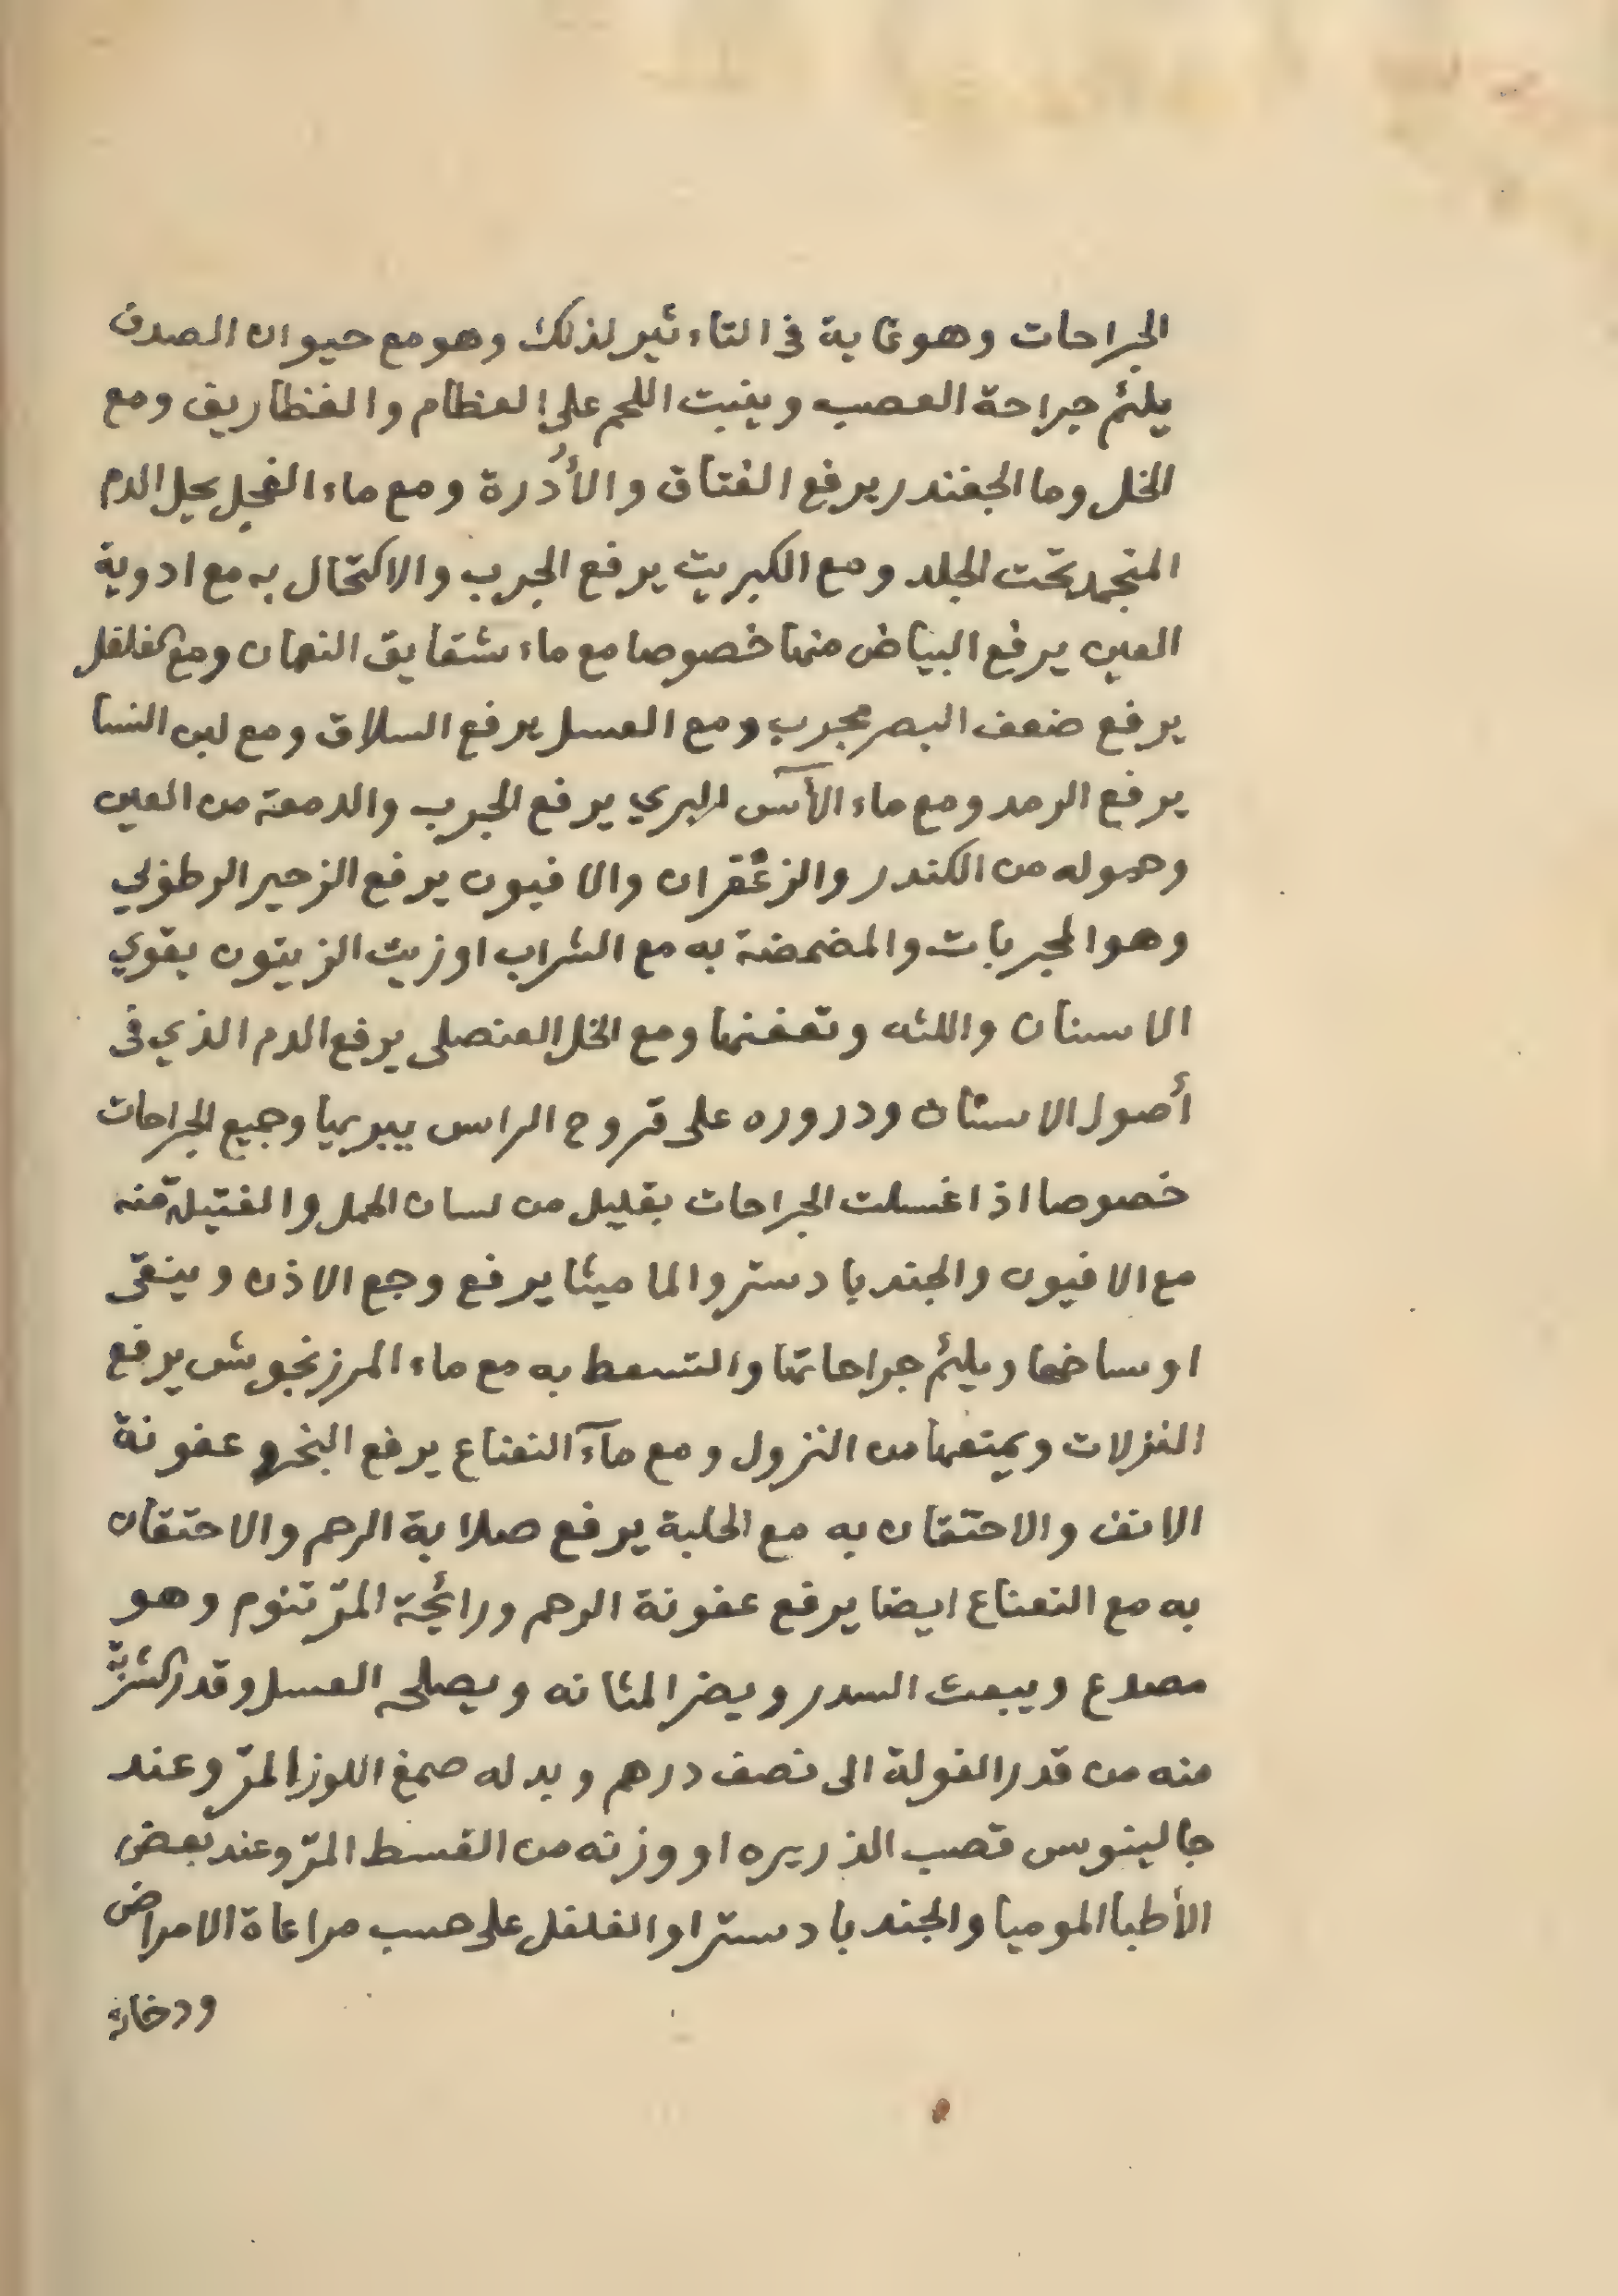 الجراحات وهو غاية فى التاء ثير لذلك وهو مع حيوان الصدف
يلئم جراحة العصب وينبت اللحم على العظام والغظاريف ومع
الخل وما الجغندر يرفع الفتاق والأُدرة ومع ماء الفجل يحل الدم
المنجمد تحت الجلد ومع الكبريت يرفع الجرب والاكتحال به مع ادوية
العين يرفع البياض منها خصوصا مع ماء شقايق النعمان ومع الفلفل
يرفع ضعف البصر مجرب ومع العسل يرفع السلاق ومع لبن النسا
يرفع الرمد ومع ماء الآس البري يرفع الجرب والدمعة من العين
وحموله من الكندر والزعفران والافيون يرفع الزحير الرطوبي
وهو المجربات والمضمضة به مع الشراب او زيت الزيتون يقوي
الاسنان واللثه وتعفنها ومع الخل العنصلى يرفع الدم الذي فى
أصول الاسنان ودروره على قروح الراس يبريها وجميع الجراحات
خصوصا اذا غسلت الجراحات بقليل من لسان الحمل والفتيلة منه
مع الافيون والجندبادستر والماميثا يرفع وجع الاذن وينقى
اوساخها ويلئم جراحاتها والتسعط به مع ماء المرزنجوش يرفع
النزلات ويمنعها من النزول ومع مآء النعناع يرفع البخر وعفونة
الانف والاحتقان به مع الحلبة يرفع صلابة الرحم والاحتقان
به مع النعناع ايضا يرفع عفونة الرحم ورائحة المرّ تنوم وهو
مصدع ويبعث السدر ويضر المثانه ويصلحه العسل وقدر الشربة
منه من قدر الفولة الى نصف درهم وبدله صمغ اللوز المرّ وعند
جالينوس قصب الذريره او وزنه من القسط المرّ وعند بعض
الأطبا الموميا والجندبادستر او الفلفل على حسب مراعاة الامراض
ودخانه